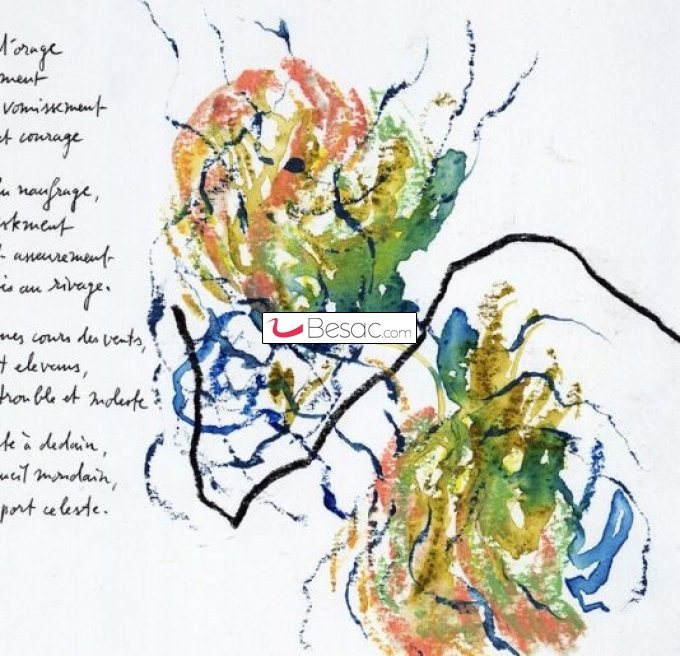 l'orage
ment
vomissement
et courage
naufrage,
assurement
au rivage.
mes cours des vents,
elevens,
trouble et moleste
te à dedain,
mondain,
port celeste.
Besac.com